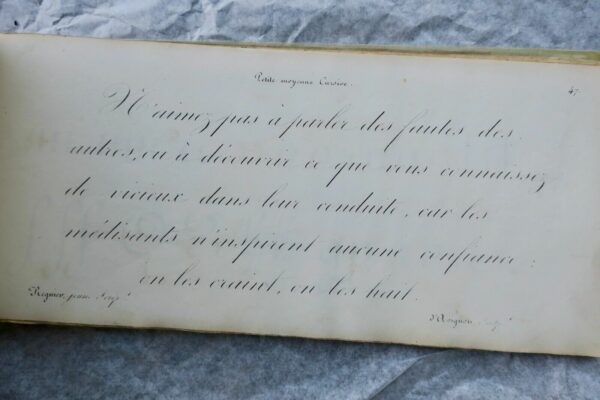 Petite moyenne Cursive.
47
N'aimez pas à parler des fautes des
autres, ou à découvrir ce que vous connaissez
de vicieux dans leur conduite, car les
médisants n'inspirent aucune confiance :
on les craint, on les hait.
Regnier, jeune
d'Avignon